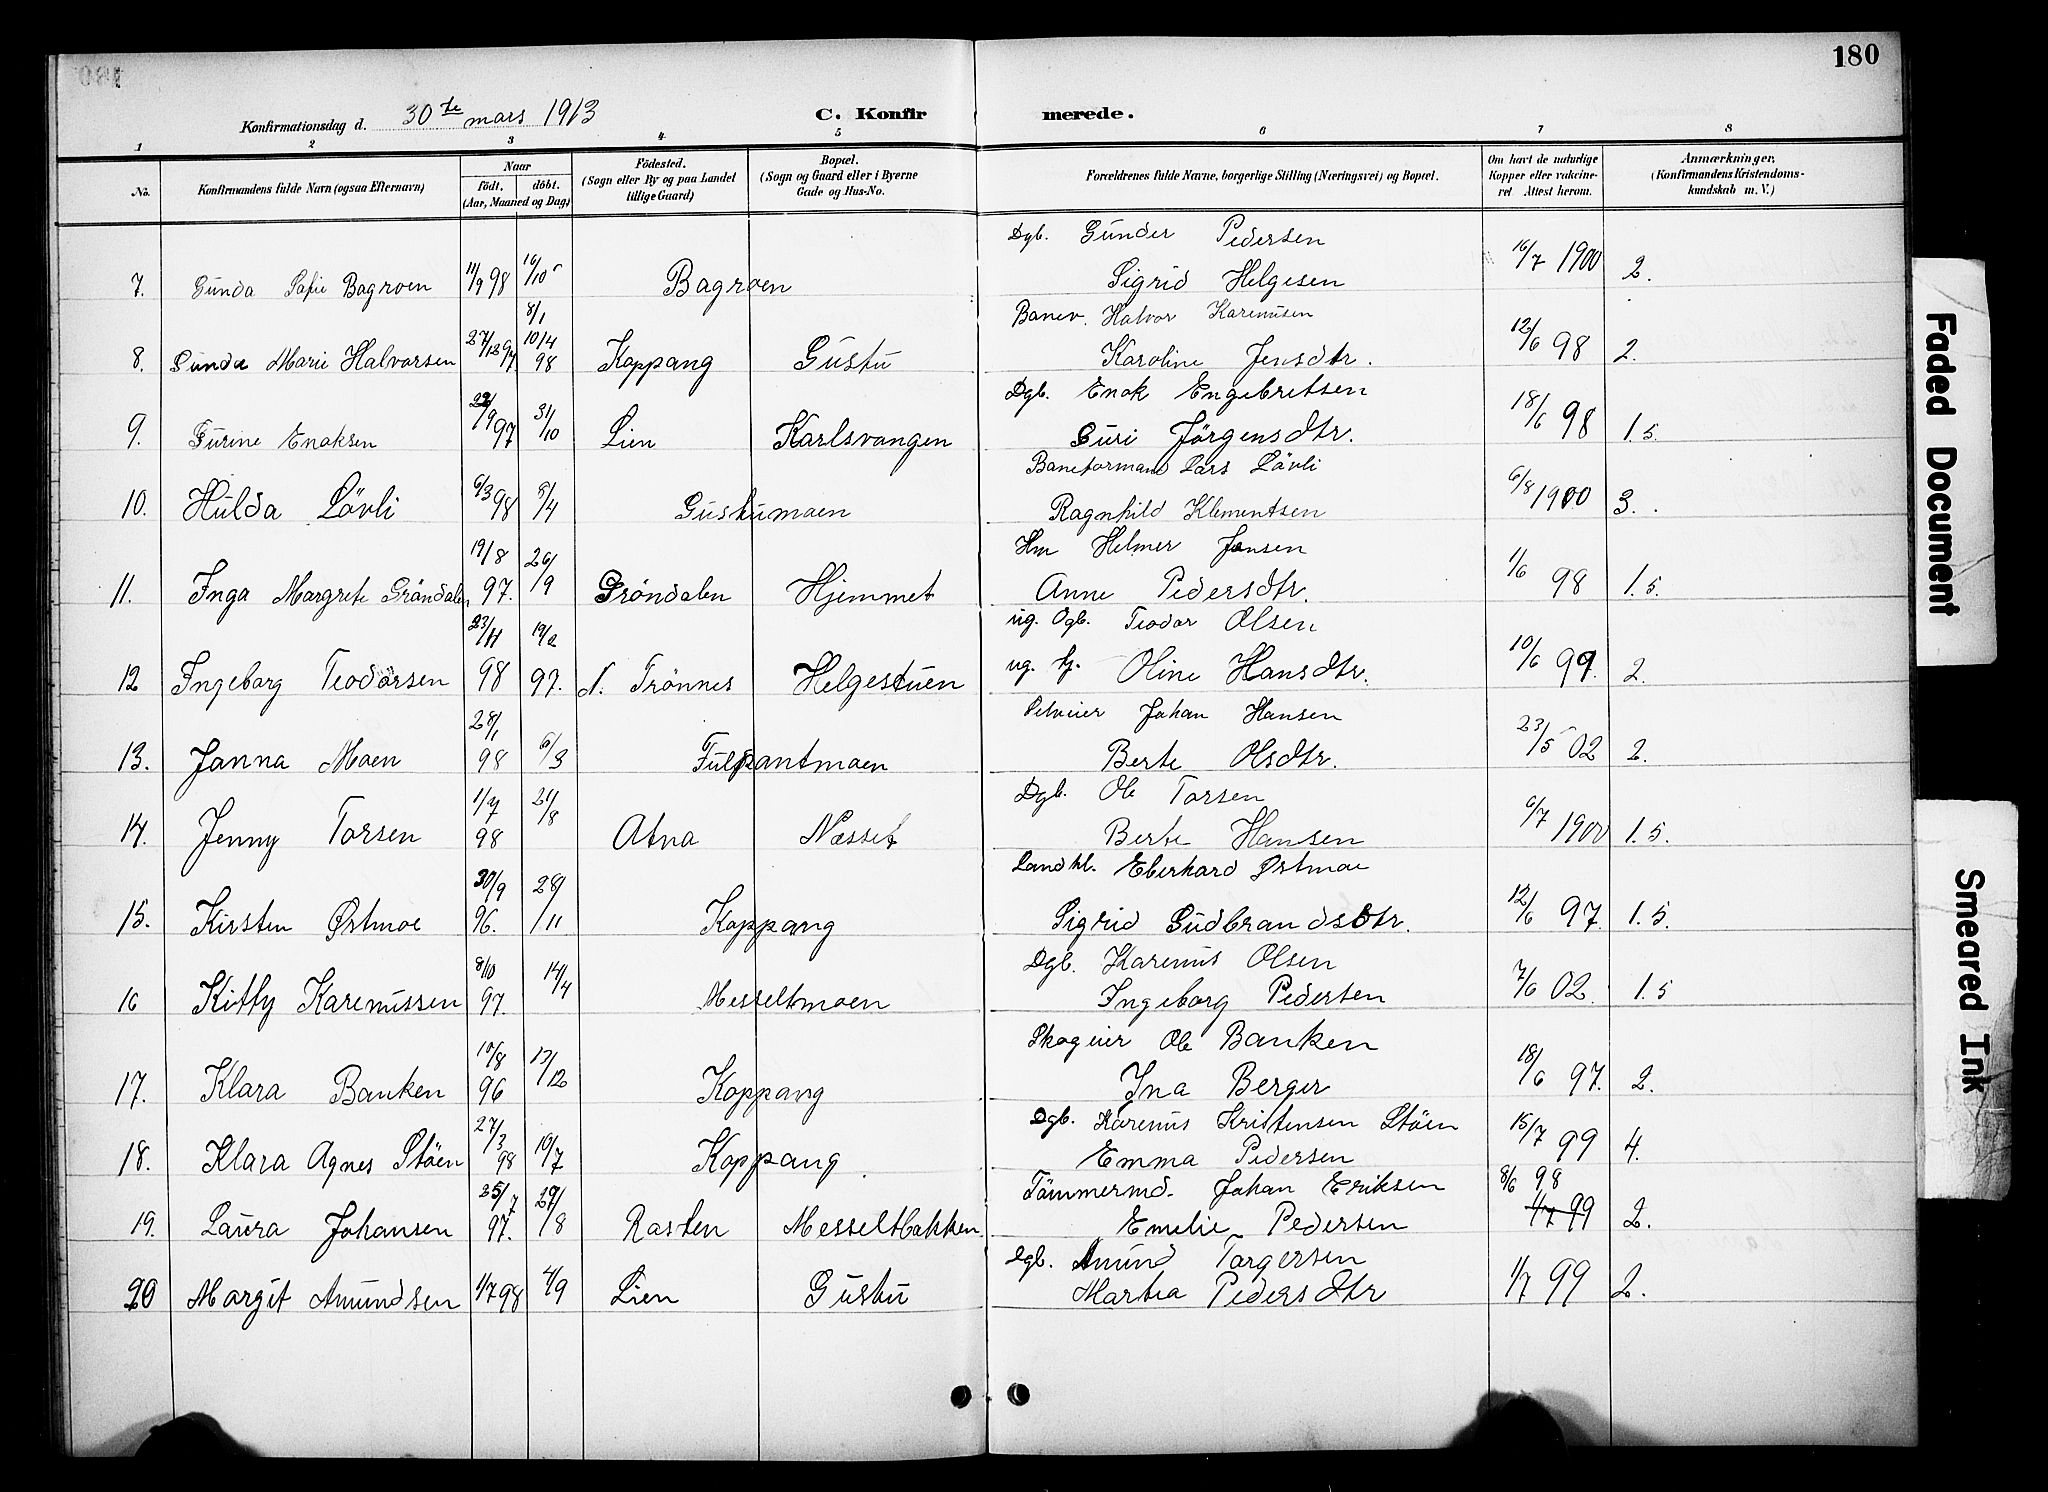 180
Konfirmationsdag d. 30te mars 1913 C. Konfirmerede.
1 2 3 4 5 6 7 8
No. Konfirmandens fulde Navn (ogsaa Efternavn) Naar født, døbt. (Aar, Maaned og Dag) Fødested. (Sogn eller By og paa Landet tillige Gaard) Bopæl. (Sogn og Gaard eller i Byerne Gade og Hus-No. Forældrenes fulde Navne, borgerlige Stilling (Næringsvei) og Bopæl. Om havt de naturlige Kopper eller vakcineret Attest herom. Anmærkninger, (Konfirmandens Kristendomskundskab m. V.)
Dgb. Gunder Pedersen
7. Gunda Sofie Bagroen 11/9 98 16/10 Bagroen Sigrid Helgesen 16/7 1900 2.
8/1
Banev. Halvor Karenusen
8. Gunda Marie Halvorsen 27/12 97 10/4 98 Koppang Gustu Karoline Jensdtr. 12/6 98 2.
Dgb. Enok Engebretsen
9. Gurine Enoksen 22/9 97 31/10 Lien Karlsvangen Guri Jörgensdtr. 18/6 98 1.5.
Baneformand Lars Lövli
10. Hulda Lövli 6/3 98 5/4 Gustumoen Ragnhild Klementsen 6/8 1900 3.
Hm Helmer Jensen
11. Inga Margrete Gröndalen 19/8 97. 26/9 Gröndalen Hjemmet Anne Pedersdtr. 1/6 98 1.5.
ug. Ogb. Teodor Olsen
12 Ingeborg Teodorsen 23/11 98 19/2 97. N. Trönnes Helgestuen ug. Oline Hansdtr. 10/6 99. 2.
Selveier Johan Hansen
13. Janna Moen 28/1 98 6/3 Fulpantmoen Berte Olsdtr. 23/5 02 2.
Dgb. Ole Torsen
14. Jenny Torsen 1/7 98 21/8 Atna Næsset Berte Hansen 6/7 1900 1.5.
Landhl. Eberhard Østmoe
15. Kirsten Østmoe 30/9 96. 28/11 Koppang Sigrid Gudbrandsdtr. 12/6 97. 1.5.
Dgb. Karenus Olsen
16 Kitty Karenussen 8/10 97. 14/4 Messeltmoen Ingeborg Pedersen 7/6 02. 1.5
Skogeier Ole Banken
17. Klara Banken 10/8 96 13/12 Koppang Ina Berger 18/6 97. 2.
Dgb. Karenus Kristensen Stöen
18. Klara Agnes Stöen 27/3 98 10/7 Koppang Emma Pedersen 15/7 99 4.
Tömmermd. Johan Eriksen 8/6 98
19. Laura Johansen 25/7 97. 29/8 Rasten Messeltbakken Emelie Pedersen 1/7 99 2.
Dgb. Amund Torgersen
20 Margit Amundsen 1/7 98 4/9 Lien Gustu Martea Pedersdtr 1/7 99 2.
Faded Document
Smeared Ink